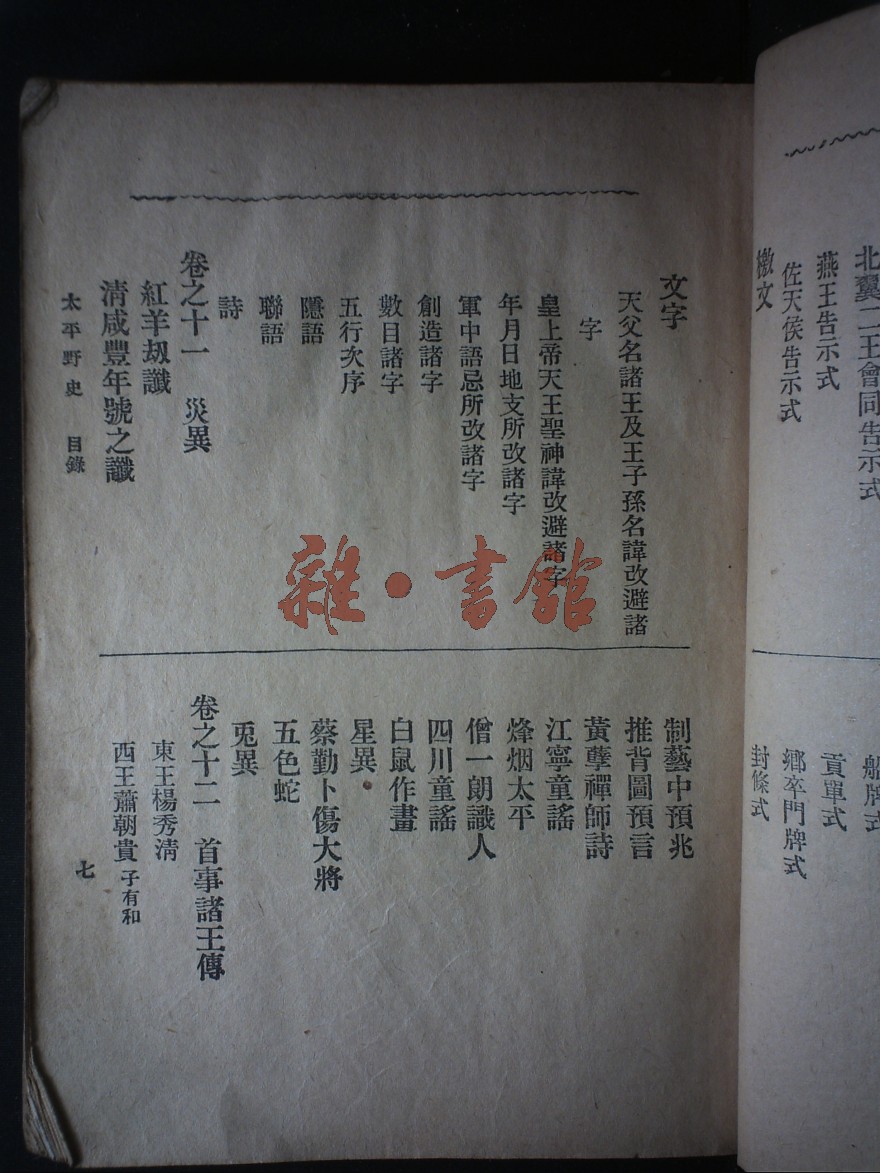 北翼二王會同告示式
燕王告示式
佐天侯告示式
檄文
船牌式
貢單式
鄉卒門牌式
封條式
文字
天父名諸王及王子孫名諱改避諸
字
皇上帝天王聖神諱改避諸字
年月日地支所改諸字
軍中語忌所改諸字
創造諸字
數目諸字
五行次序
隱語
聯語
詩
卷之十一 災異
紅羊刼讖
清咸豐年號之讖
制藝中預兆
推背圖預言
黃孽禪師詩
江寧童謠
烽烟太平
僧一朗識人
四川童謠
白鼠作畫
星異
蔡勤卜傷大將
五色蛇
兎異
卷之十二 首事諸王傳
東王楊秀淸
西王蕭朝貴 子有和
太平野史 目錄
七
雜·書館